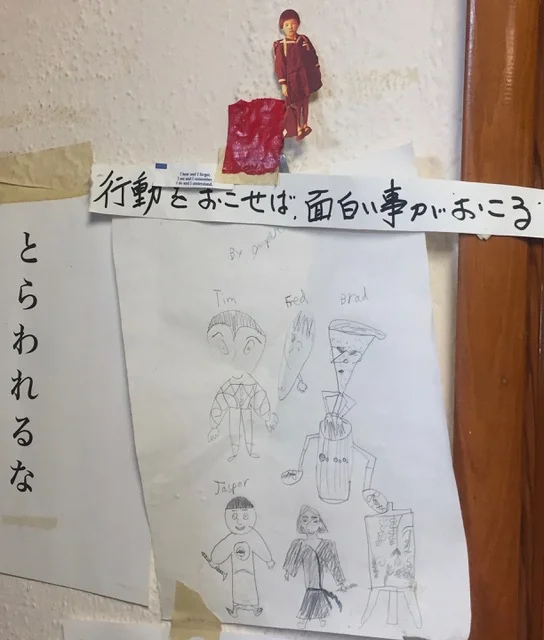 I hear and I forget.
I see and I remember.
I do and I understand.
行動をおこせば、面白い事がおこる
とらわれるな
By
Tim
Fred
Brad
Jaspar